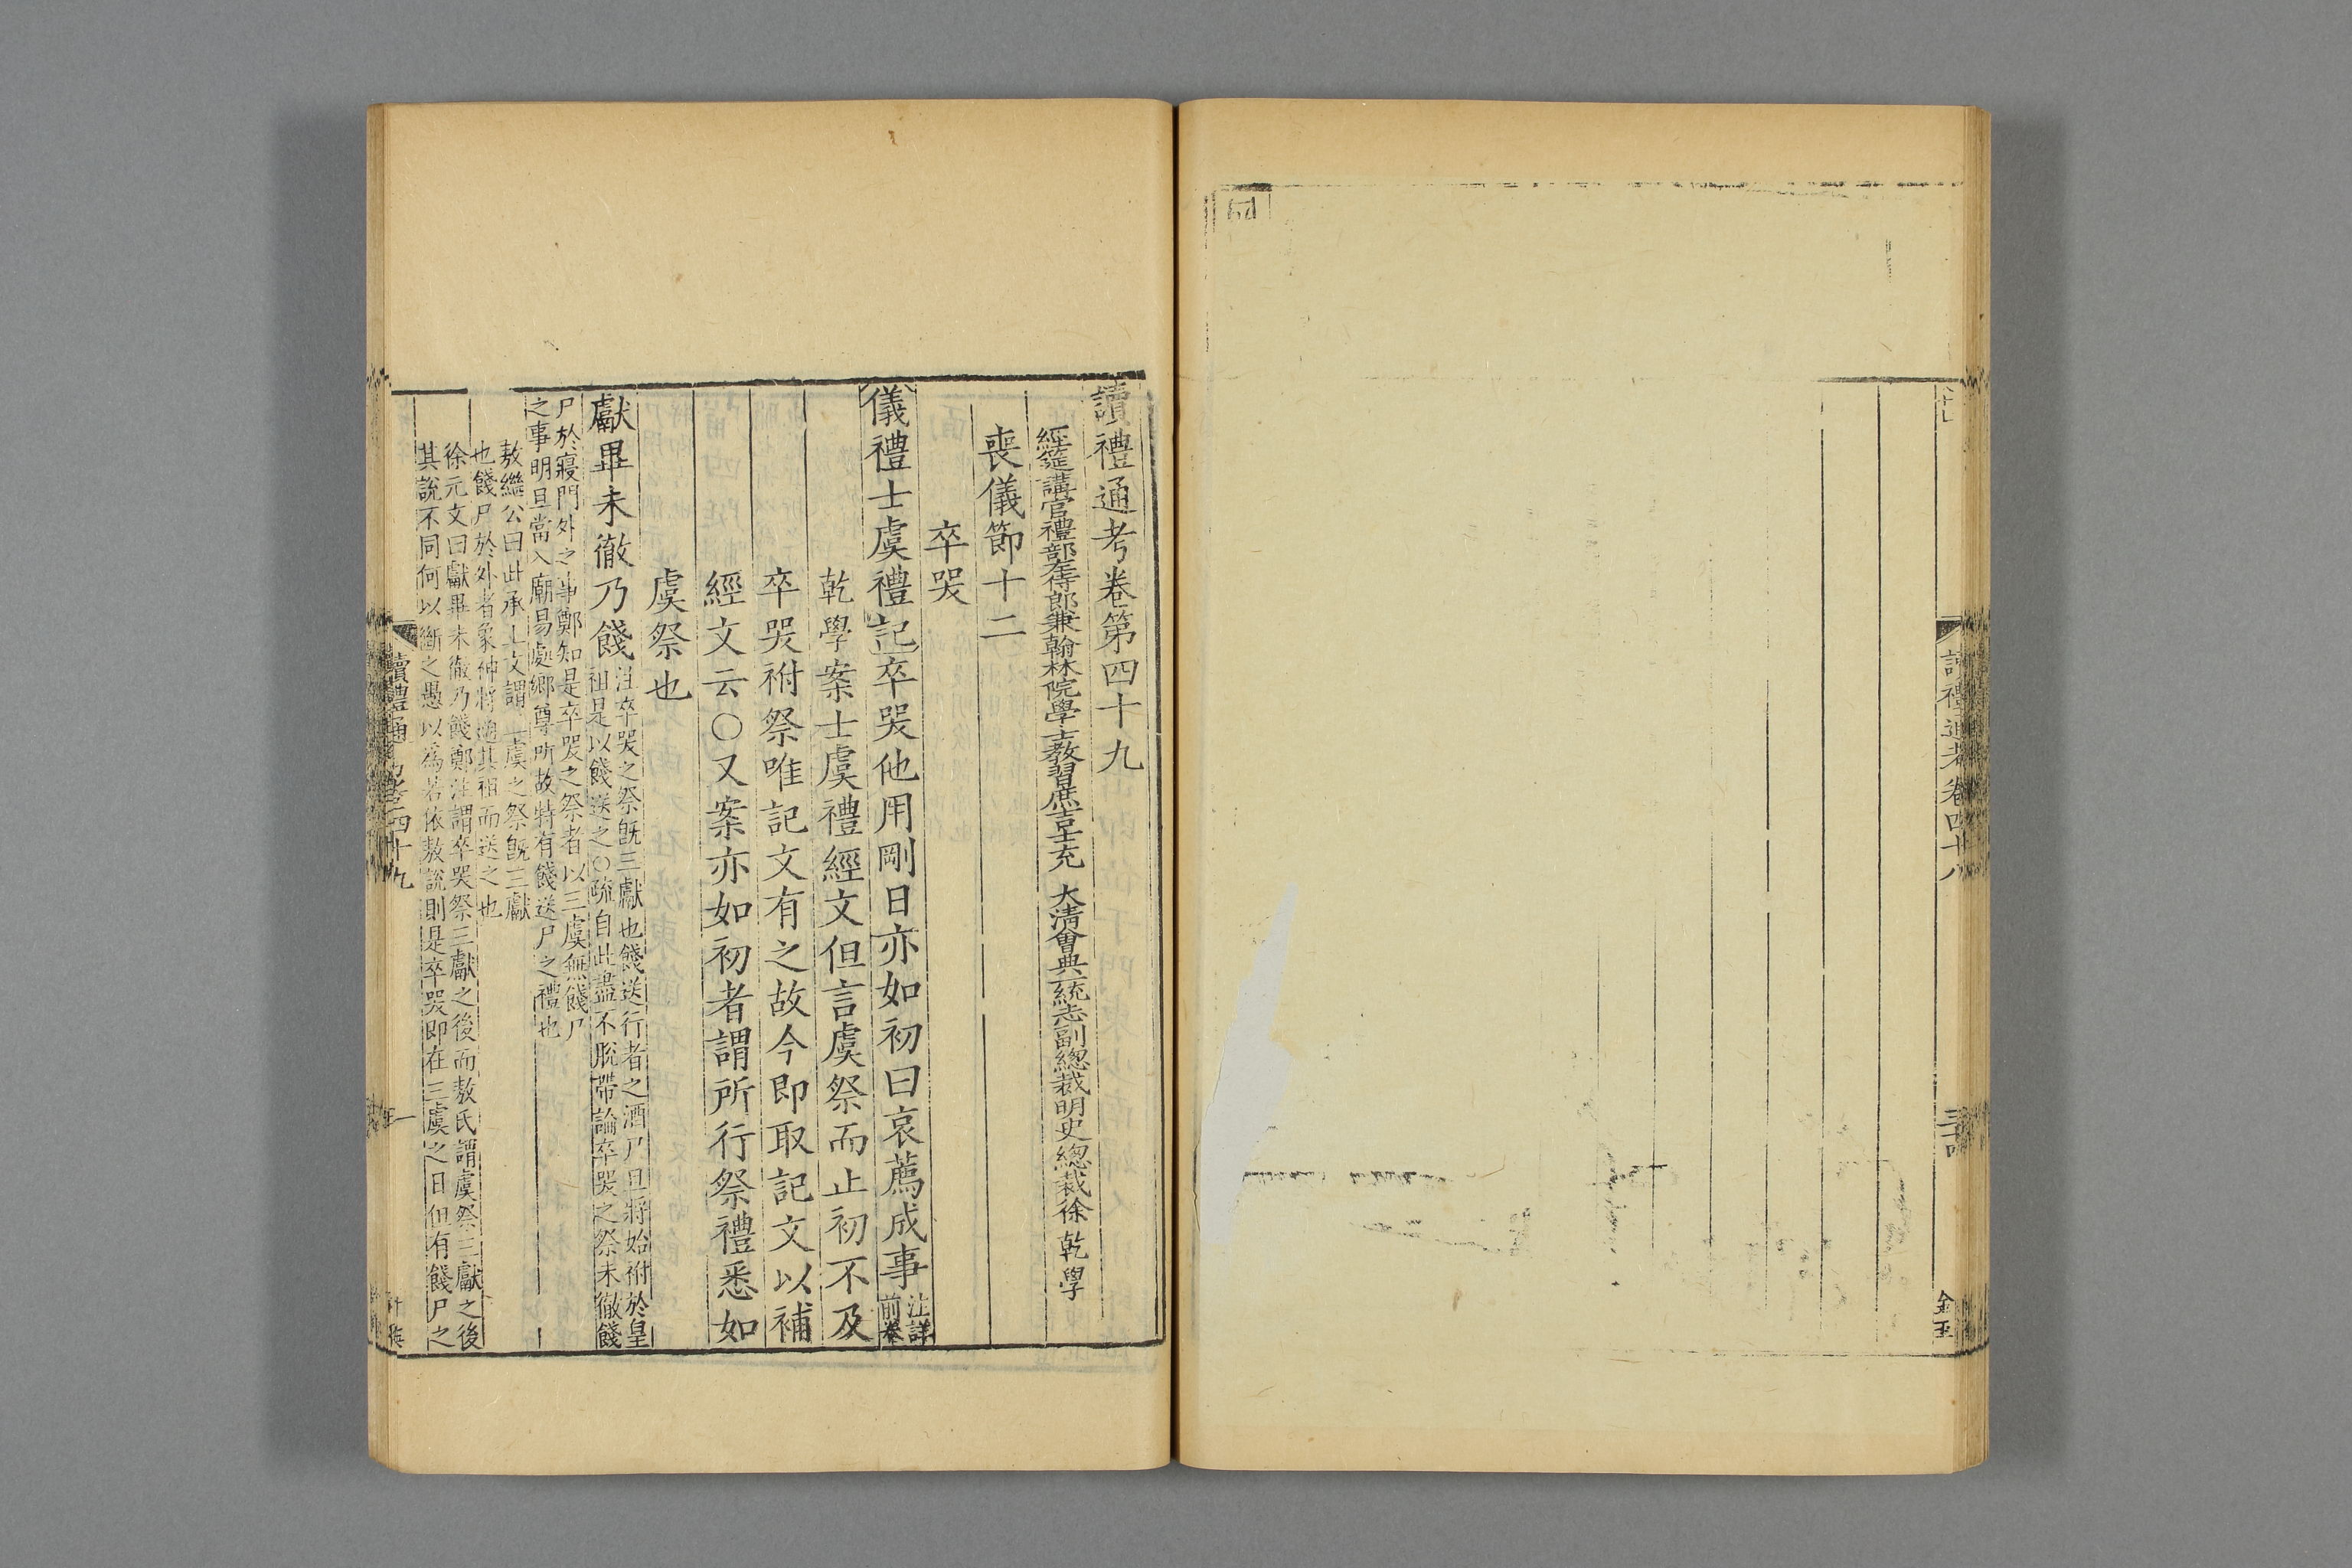 讀禮通考卷四十八
三十四
讀禮通考卷第四十九
經筵講官禮部左侍郎兼翰林院學士教習庶吉士充　大清會典一統志副總裁明史總裁徐乾學
喪儀節十二
卒哭
儀禮士虞禮記卒哭他用剛日亦如初曰哀薦成事注詳
前卷
乾學案士虞禮經文但言虞祭而止初不及
卒哭祔祭唯記文有之故今即取記文以補
經文云○又案亦如初者謂所行祭禮悉如
虞祭也
獻畢未徹乃餞注卒哭之祭旣三獻也餞送行者之酒尸旦將始祔於皇
祖是以餞送之○疏自此盡不脫帶論卒哭之祭未徹餞
尸於寢門外之事鄭知是卒哭之祭者以三虞無餞尸
之事明旦當入廟易處鄉尊所故特有餞送尸之禮也
敖繼公曰此承上文謂三虞之祭旣三獻
也餞尸於外者象神將適其祖而送之也
徐元文曰獻畢未徹乃餞鄭注謂卒哭祭三獻之後而敖氏謂虞祭三獻之後
其說不同何以斷之愚以爲若依敖說則是卒哭即在三虞之日但有餞尸之
讀禮通考卷四十九
一